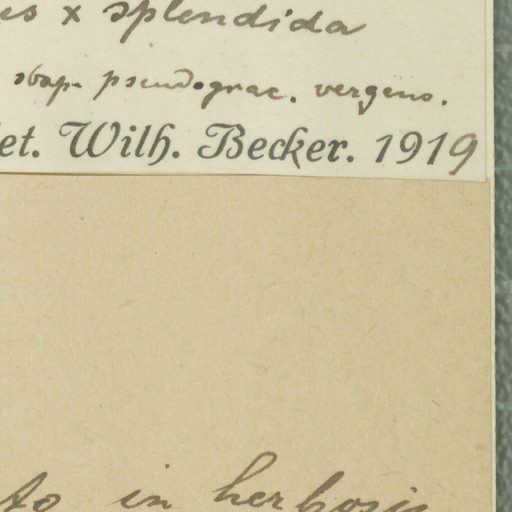 x splendida
sbsp. pseudograc. vergens.
et. Wilh. Becker. 1919
in herbosis